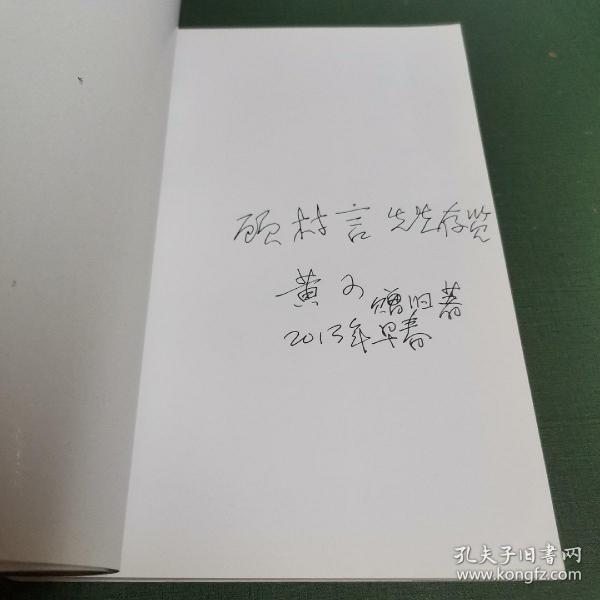 顾村言先生存览
黄 赠旧著
2013年早春
孔夫子旧書网
www.kongfz.com